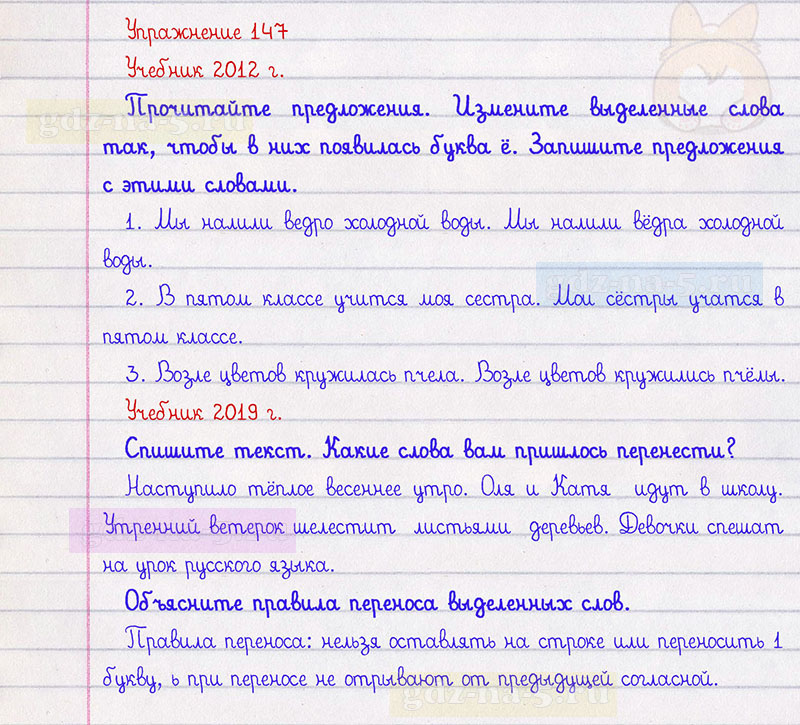 Упражнение 147
Учебник 2012 г.
Прочитайте предложения. Измените выделенные слова
так, чтобы в них появилась буква ё. Запишите предложения
с этими словами.
1. Мы налили ведро холодной воды. Мы налили вёдра холодной
воды.
2. В пятом классе учится моя сестра. Мои сёстры учатся в
пятом классе.
3. Возле цветов кружилась пчела. Возле цветов кружились пчёлы.
Учебник 2019 г.
Спишите текст. Какие слова вам пришлось перенести?
Наступило тёплое весеннее утро. Оля и Катя идут в школу.
Утренний ветерок шелестит листьями деревьев. Девочки спешат
на урок русского языка.
Объясните правила переноса выделенных слов.
Правила переноса: нельзя оставлять на строке или переносить 1
букву, ь при переносе не отрывают от предыдущей согласной.
gdz-na-5.ru
gdz-na-5.ru
gdz-na-5.ru